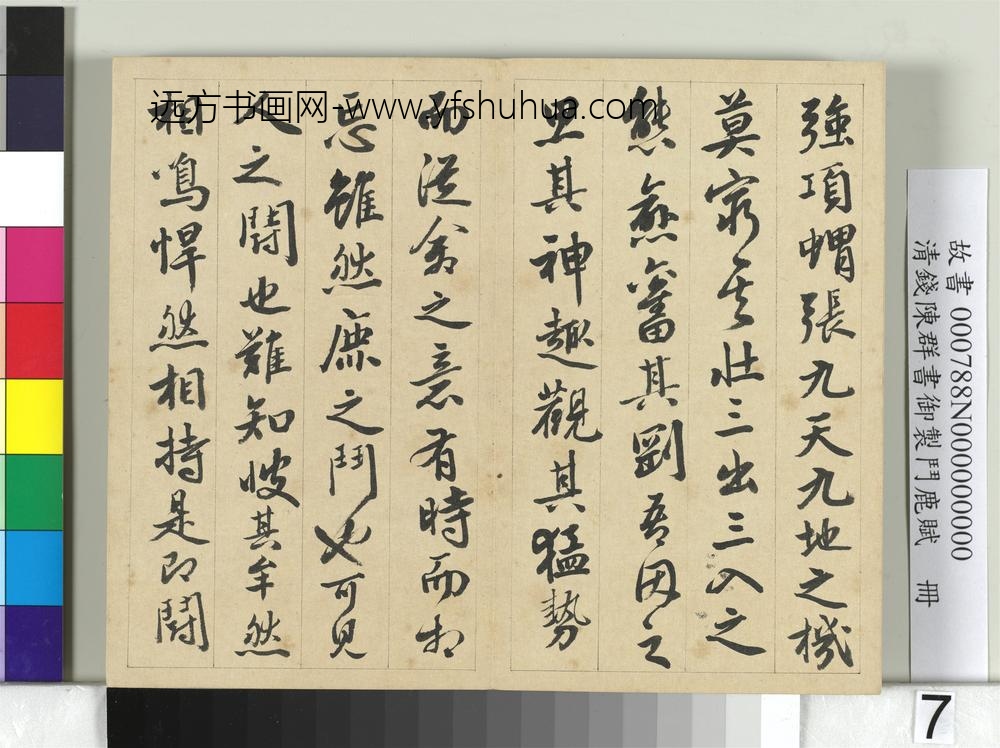 強項蝟張九天九地之機
莫窮其壯三出三入之
態無蓄其劉吾因之
思其神趣觀其猛勢
而從禽之意有時而相
忘雖然鹿之鬥也可見
人之鬪也難知晙其牟然
相鳴悍然相持是即鬪
远方书画网-www.yfshuhua.com
故書 000788N000000000
清錢陳群書御製鬥鹿賦 冊
7